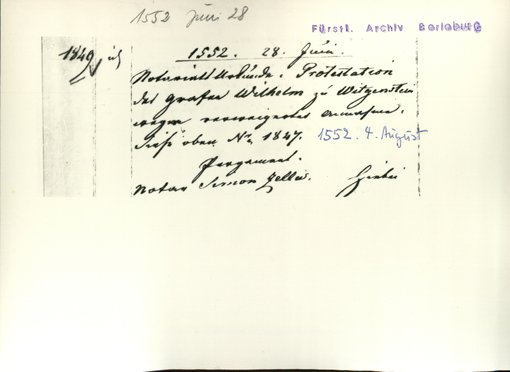 1552 Juni 28
Fürstl. Archiv Berleburg
1849
1552. 28. Juni.
Notariats Urkunde: Protestation
des Grafen Wilhelm zu Witgenstein
wegen verweigerter
Siehe oben No 1847. 1552. 4. August
Pergament.
Notar Simon Zeller.